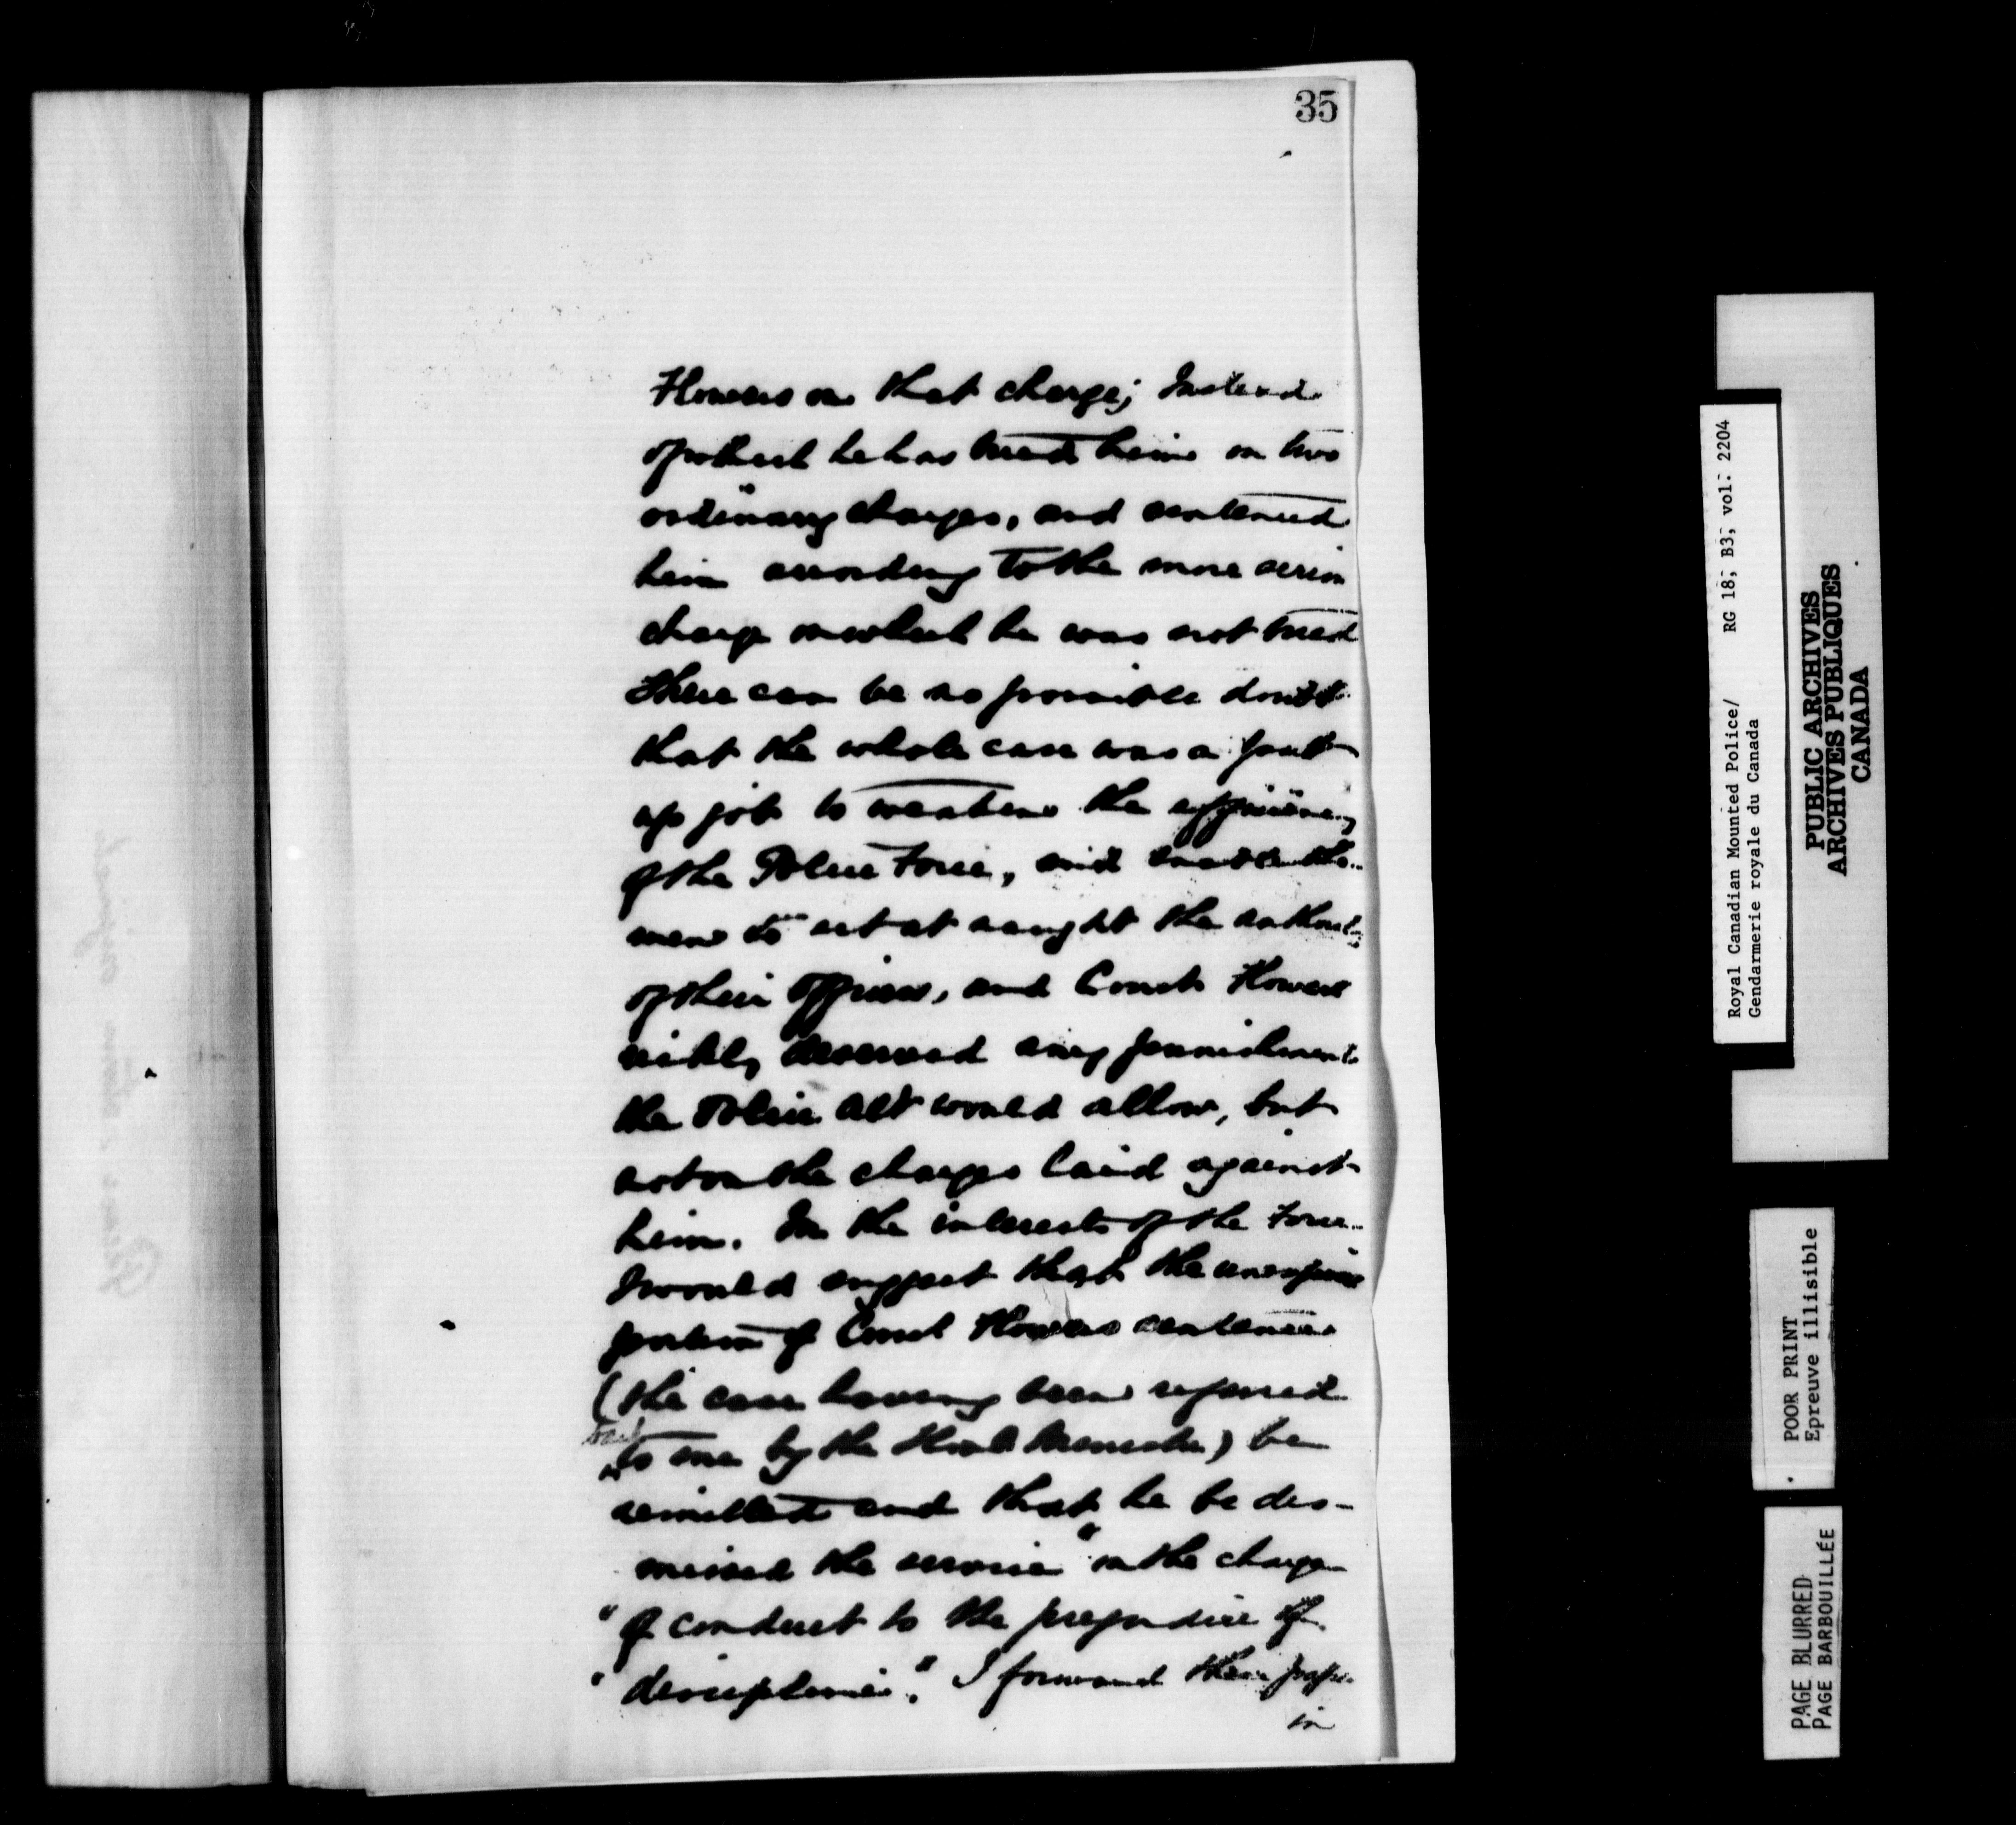 35
Flowers on that charge; Instead
of which he has tried him on two
ordinary charges, and sentenced
him according to the more serious
charge on which he was not tried
There can be no possible doubt
that the whole case was a put
up job to weaken the efficiency
of the Police Force, and the
men to set at naught the authority
of their officers, and Const Flowers
richly deserved any punishment
the Police Act would allow, but
not on the charges laid against
him. In the interests of the Force
I would suggest that the unexpired
portion of Const Flowers sentences
(the case having been referred
to me by the Hon'l Minister) be
remitted and that he be dis-
missed the service "on the charge
" of conduct to the prejudice of
" discipline." I forward these papers
in
Royal Canadian Mounted Police/ RG 18, B3, vol. 2204
Gendarmerie royale du Canada
PUBLIC ARCHIVES
ARCHIVES PUBLIQUES
CANADA
POOR PRINT
Epreuve illisible
PAGE BLURRED
PAGE BARBOUILLÉE